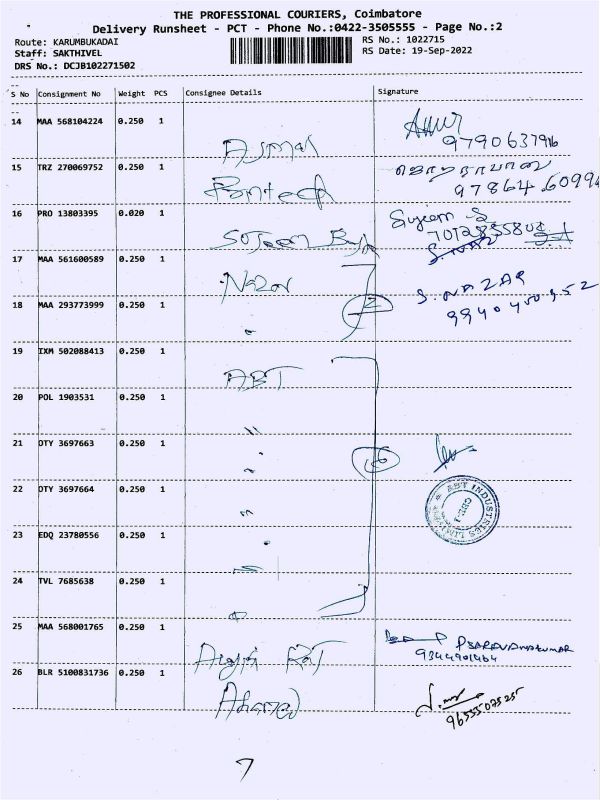 THE PROFESSIONAL COURIERS, Coimbatore
Delivery Runsheet - PCT - Phone No.:0422-3505555 - Page No.:2
Route: KARUMBUKADAI
RS No.: 1022715
Staff: SAKTHIVEL
RS Date: 19-Sep-2022
DRS No.: DCJB102271502
S No Consignment No Weight PCS Consignee Details Signature
14 MAA 568104224 0.250 1 Ajmal
9790637916
15 TRZ 270069752 0.250 1 Pontech
97864 60994
16 PRO 13803395 0.020 1
17 MAA 561600589 0.250 1 Nazar
S. NAZAR
18 MAA 293773999 0.250 1 2
9940 450 952
19 IXM 502088413 0.250 1 ABT
20 POL 1903531 0.250 1
21 OTY 3697663 0.250 1 6
22 OTY 3697664 0.250 1
ABT INDUSTRIES LIMITED
23 EDQ 23780556 0.250 1
24 TVL 7685638 0.250 1
25 MAA 568001765 0.250 1
P SARAVANAKUMAR
9344901464
26 BLR 5100831736 0.250 1 Ahamed
9655507525
7